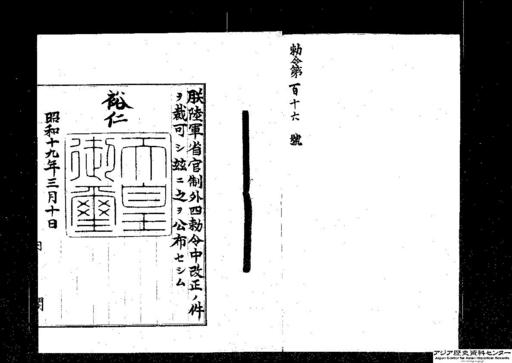 勅令第百十六號
朕陸軍省官制外四勅令中改正ノ件
ヲ裁可シ玆ニ之ヲ公布セシム
裕仁
天皇
御璽
昭和十九年三月十日
内
閣
アジア歴史資料センター
Japan Center for Asian Historical Records